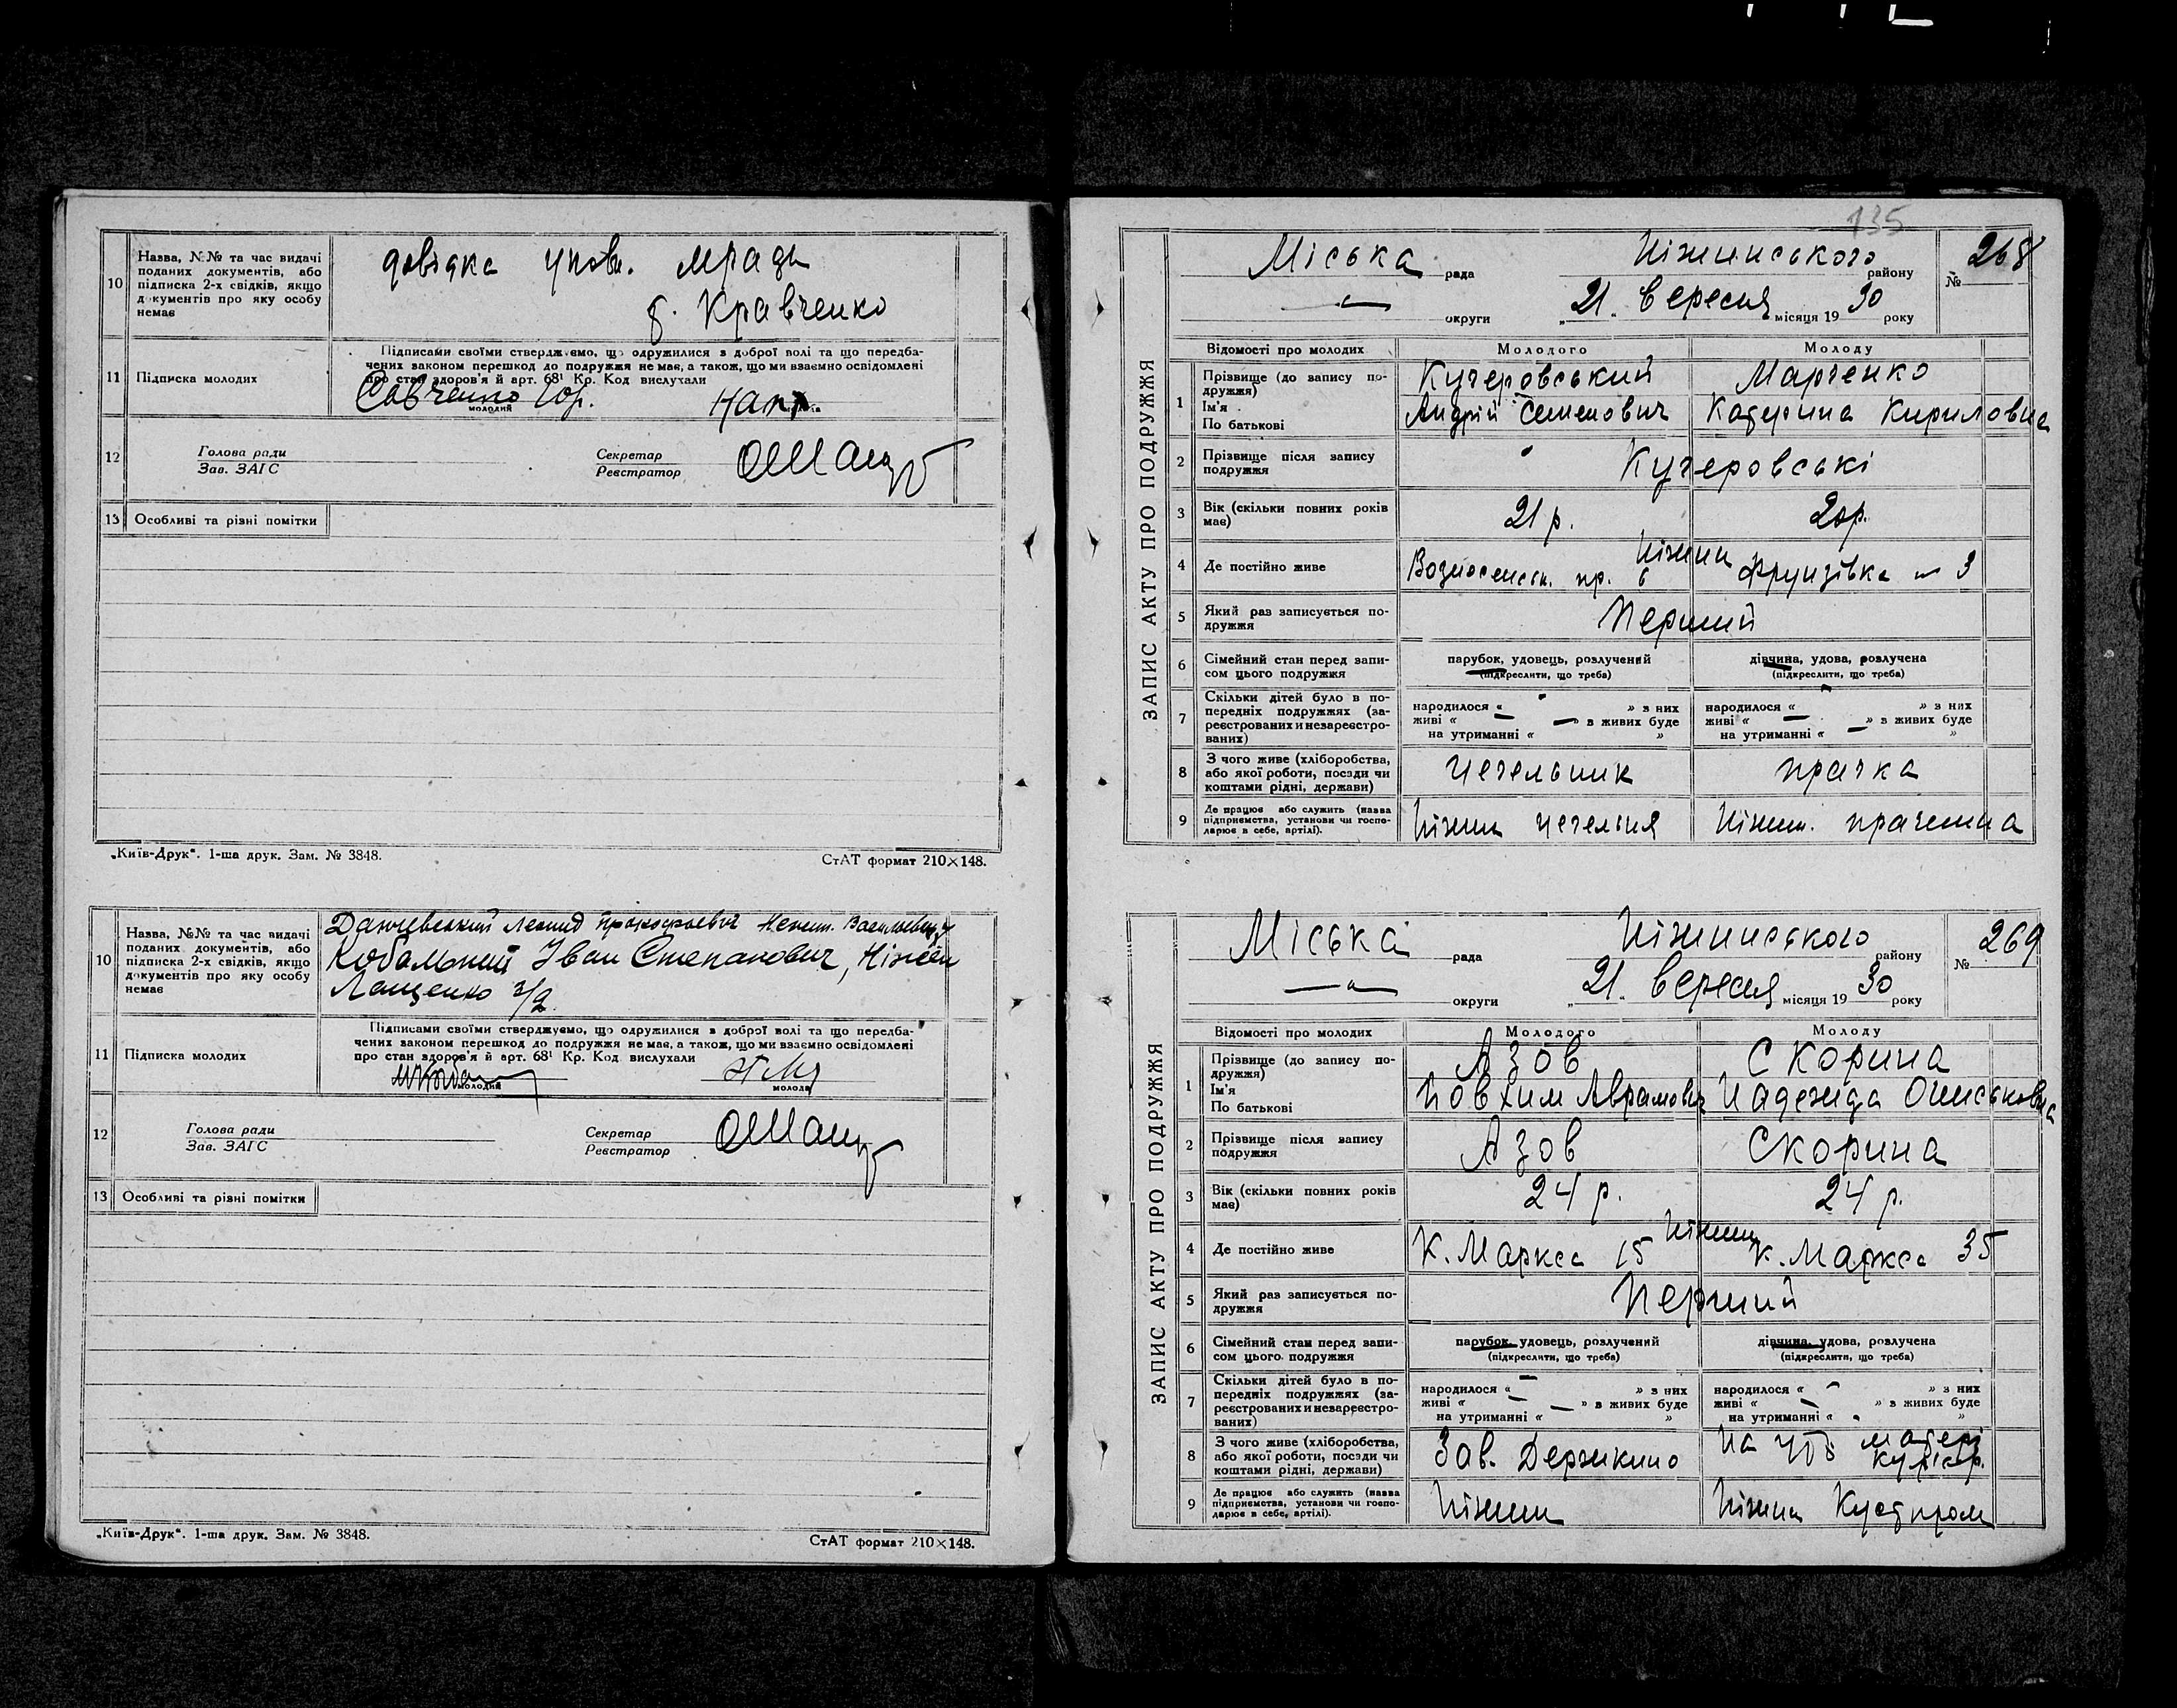 10
Назва, №№ та час видачі
поданих документів, або
підписка 2-х свідків, якщо
документів про яку особу
немає
довідка упов. мради
Кравченко
11
Підписка молодих
Підписами своїми стверджуємо, що одружилися з доброї волі та що передба-
чених законом перешкод до подружжя не має, а також, що ми взаємно освідомлені
про стан здоров'я й арт. 68¹ Кр. Код вислухали
Савченко Юр.
молодий
12
Голова ради
Зав. ЗАГС
Секретар
Реєстратор
13 Особливі та різні помітки
„Київ-Друк“. 1-ша друк. Зам. № 3848.
СтАТ формат 210×148.
10
Назва, №№ та час видачі
поданих документів, або
підписка 2-х свідків, якщо
документів про яку особу
немає
Леонид Прокофьевич
Іван Степанович, Ніжен
Лащенко
11
Підписка молодих
Підписами своїми стверджуємо, що одружилися з доброї волі та що передба-
чених законом перешкод до подружжя не має, а також, що ми взаємно освідомлені
про стан здоров'я й арт. 68¹ Кр. Код вислухали
молодий
молода
12
Голова ради
Зав. ЗАГС
Секретар
Реєстратор
13 Особливі та різні помітки
„Київ-Друк“. 1-ша друк. Зам. № 3848.
СтАТ формат 210×148.
135
ЗАПИС АКТУ ПРО ПОДРУЖЖЯ
Міська рада Ніжинського району № 268
— округи „21“ вересня місяця 1930 року
Відомості про молодих
Молодого
Молоду
1
Прізвище (до запису по-
дружжя)
Ім'я
По батькові
Кучеровський
Андрій Семенович
Марченко
Катерина Кириловна
2
Прізвище після запису
подружжя
Кучеровські
3
Вік (скільки повних років
має)
21 р.
20 р.
4
Де постійно живе
Вознесенськ. пр. 6
Ніжин
Фрунзівка 3
5
Який раз записується по-
дружжя
Перший
6
Сімейний стан перед запи-
сом цього подружжя
парубок, удовець, розлучений
(підкреслити, що треба)
дівчина, удова, розлучена
(підкреслити, що треба)
7
Скільки дітей було в по-
передніх подружжях (за-
реєстрованих и незареєстро-
ваних)
народилося « — » з них
живі « — » з живих буде
на утриманні « »
народилося « — » з них
живі « — » з живих буде
на утриманні « — »
8
З чого живе (хліборобства,
або якої роботи, посади чи
коштами рідні, держави)
чегельник
прачка
9
Де працює або служить (назва
підприємства, установи чи госпо-
дарює в себе, артілі).
Ніжин чегельня
Ніжин. прачешна
ЗАПИС АКТУ ПРО ПОДРУЖЖЯ
Міська рада Ніжинського району № 269
— округи „21“ вересня місяця 1930 року
Відомості про молодих
Молодого
Молоду
1
Прізвище (до запису по-
дружжя)
Ім'я
По батькові
Азов
Йовхим Аврамович
Скорина
Надежда
2
Прізвище після запису
подружжя
Азов
Скорина
3
Вік (скільки повних років
має)
24 р.
24 р.
4
Де постійно живе
К. Маркса 15
Ніжин
К. Маркса 35
5
Який раз записується по-
дружжя
Перший
6
Сімейний стан перед запи-
сом цього подружжя
парубок, удовець, розлучений
(підкреслити, що треба)
дівчина, удова, розлучена
(підкреслити, що треба)
7
Скільки дітей було в по-
передніх подружжях (за-
реєстрованих и незареєстро-
ваних)
народилося « — » з них
живі « — » з живих буде
на утриманні « »
народилося « — » з них
живі « — » з живих буде
на утриманні « »
8
З чого живе (хліборобства,
або якої роботи, посади чи
коштами рідні, держави)
Зав. Держкино
На
9
Де працює або служить (назва
підприємства, установи чи госпо-
дарює в себе, артілі).
Ніжин
Ніжин Кустпром